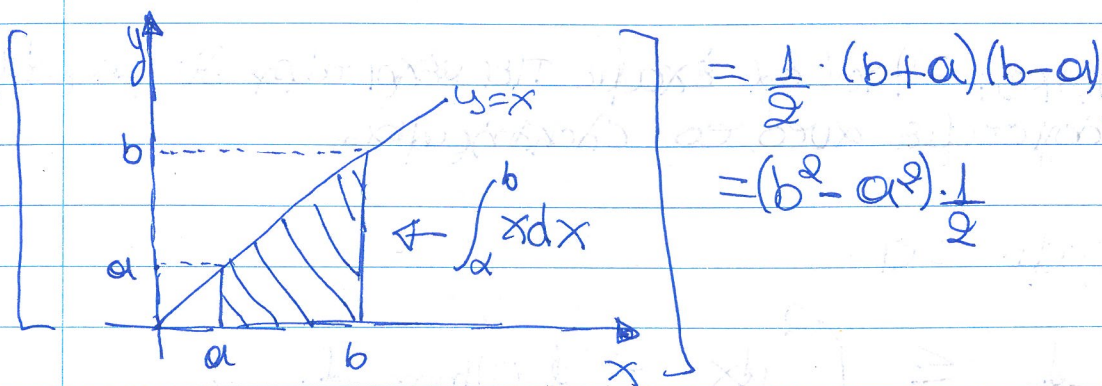 y
y=x
b
a
a
b
x
← ∫_a^b xdx
= 1/2 · (b+a)(b-a)
=(b²-a²)·1/2